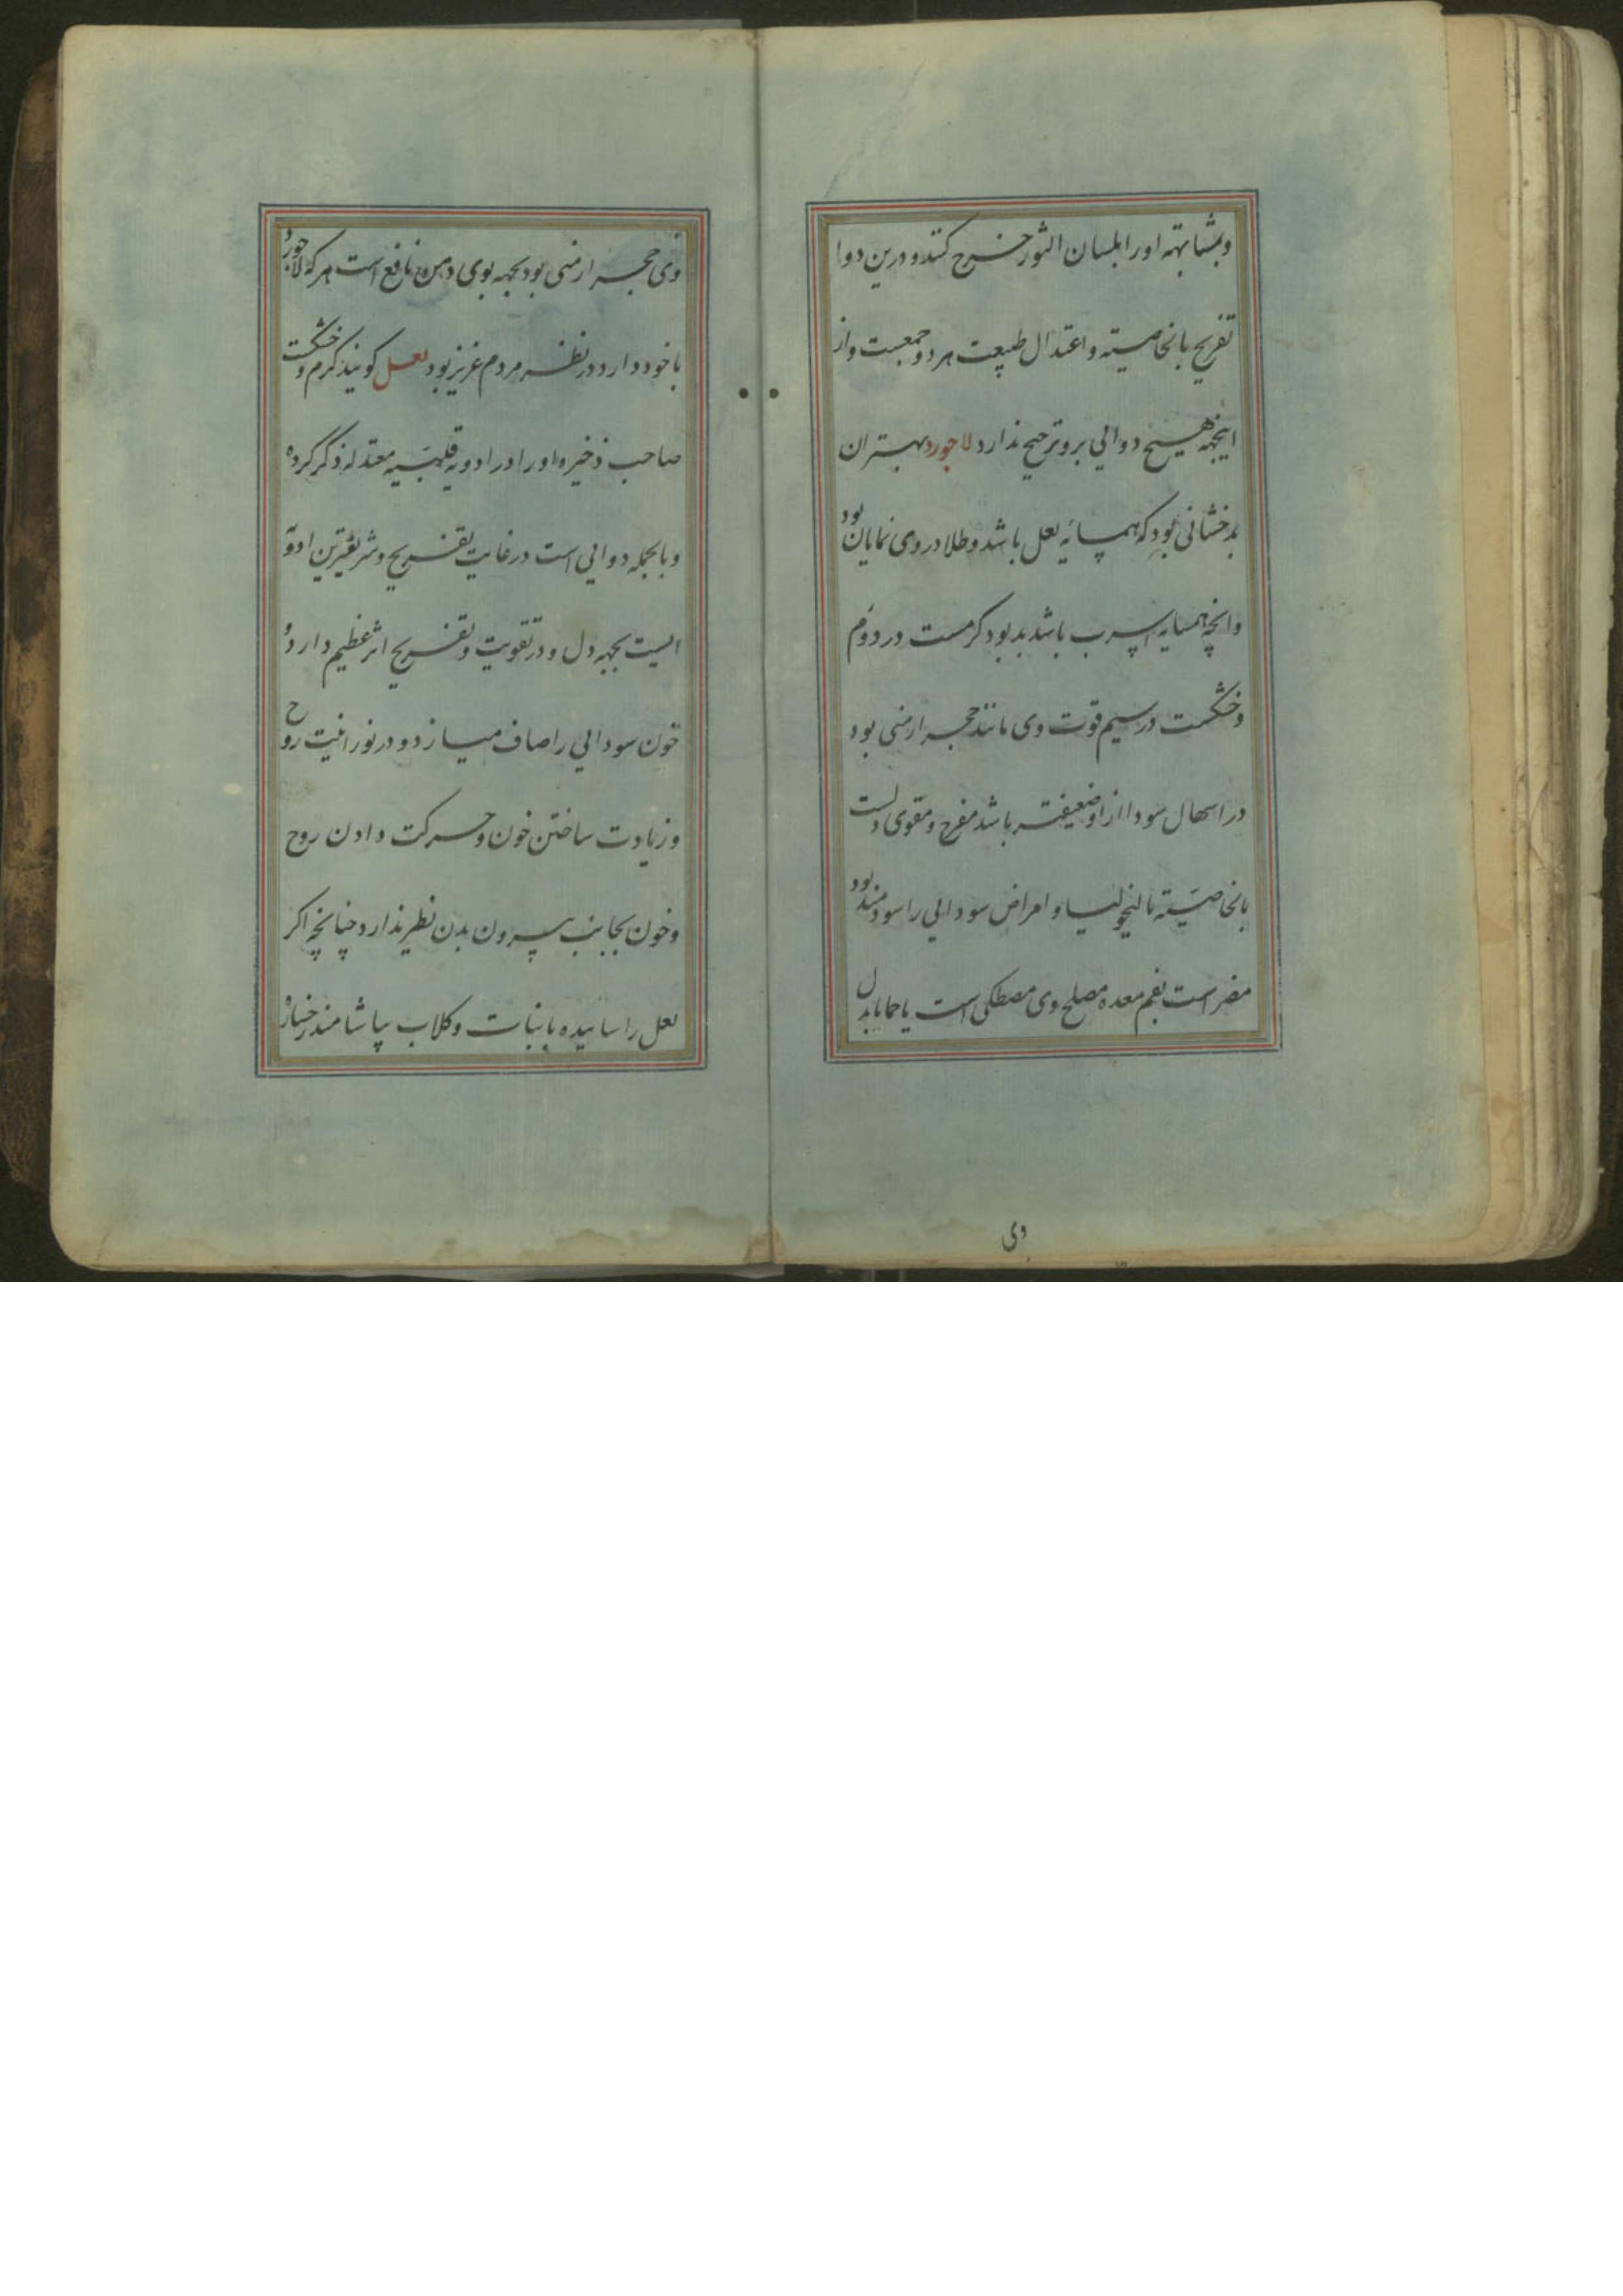 وبمشابهته او را بلسان الثور خرج کنند و درین دوا
تفریح بالخاصیته و اعتدال طبیعت هر دو جمعست و از
اینجهه هیچ دوائی برو ترجیح ندارد لاجورد بهتر ان
بدخشانی بود که همسایه لعل باشد و طلا در وی نمایان بود
وانچه همسایه اسرب باشد بد بود کرمست در دوم
و خشکست در سیم قوت وی مانند حجر ارمنی بود
در اسهال سودا از او ضعیفتر باشد مفرح و مقوی دلست
بالخاصیته مالیخولیا و امراض سودایی را سودمند بود
مضر است بفم معده مصلح وی مصطکی است یا حماما بدل
وی
وی حجر ارمنی بود بجهه بوی دهن نافع است هر که لاجورد
با خود دارد در نظر مردم عزیز بود لعل کویند کرم و خشکست
صاحب ذخیره او را در ادویه قلبیه معتدله ذکر کرده
و بالجمله دوایی است در غایت تفریح و شریفترین ادویه
ایست بجهه دل و در تقویت و تفریح اثر عظیم دارد و
خون سودایی را صاف میسازد و در نورانیت روح
و زیادت ساختن خون و حرکت دادن روح
و خون بجانب بیرون بدن نظیر ندارد چنانچه اکر
لعل را سائیده با نبات و کلاب بیاشامند رخساره